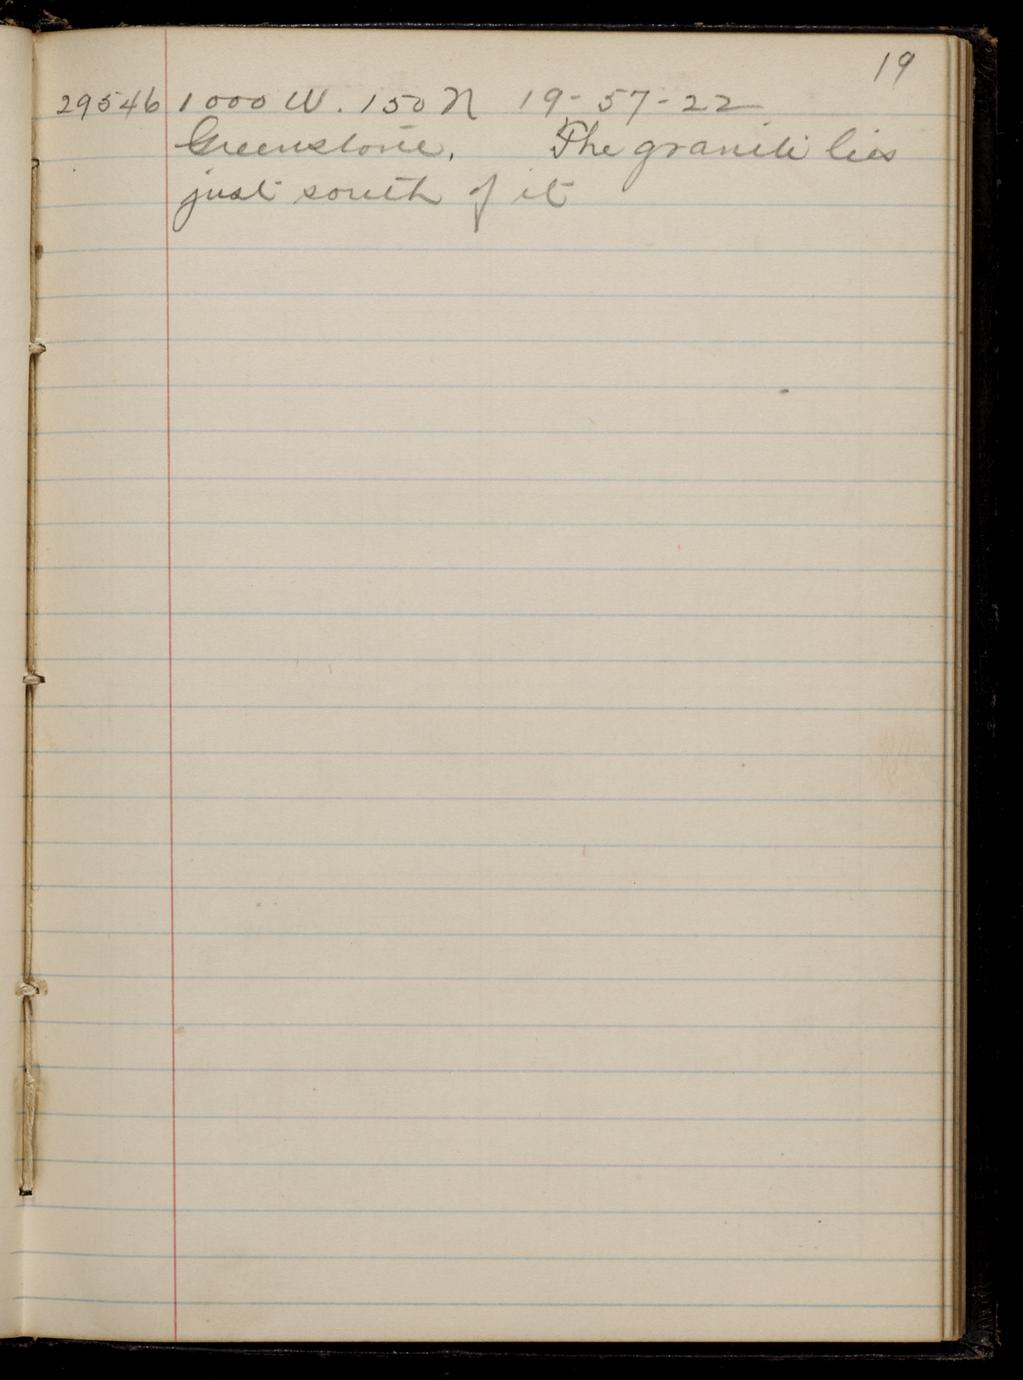 19
29546 1000 W. 150 N 19-57-22
Greenstone. The granite lies
just south of it